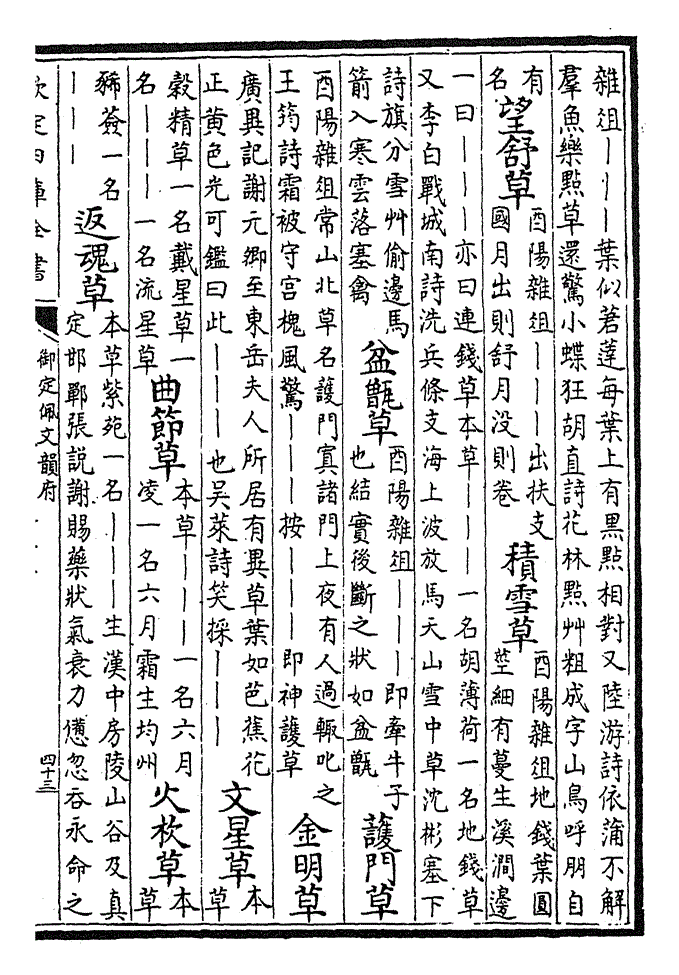 雜俎丨丨丨葉似莙薘每葉上有黑點相對又陸游詩依蒲不解
羣魚樂點草還驚小蝶狂胡直詩花林點艸粗成字山鳥呼朋自
有
名
望舒草
酉陽雜俎丨丨丨出扶支
國月出則舒月没則卷
積雪草
酉陽雜俎地錢葉圓
莖細有蔓生溪澗邊
一曰丨丨丨亦曰連錢草本草丨丨丨一名胡薄荷一名地錢草
又李白戰城南詩洗兵條支海上波放馬天山雪中草沈彬塞下
詩旗分雪艸偷邊馬
箭入寒雲落塞禽
盆甑草
酉陽雜俎丨丨丨即牽牛子
也結實後斷之狀如盆甑
護門草
酉陽雜俎常山北草名護門寘諸門上夜有人過輒叱之
王筠詩霜被守宮槐風驚丨丨丨按丨丨丨即神護草
金明草
廣異記謝元卿至東岳夫人所居有異草葉如芭蕉花
正黃色光可鑑曰此丨丨丨也吳萊詩笑採丨丨丨
文星草
本
草
穀精草一名戴星草一
名丨丨丨一名流星草
曲節草
本草丨丨丨一名六月
凌一名六月霜生均州
火杴草
本
草
豨薟一名
丨丨丨
返魂草
本草紫菀一名丨丨丨生漢中房陵山谷及真
定邯鄲張説謝賜藥狀氣衰力憊忽吞永命之
欽定四庫全書
御定佩文韻府
四十三